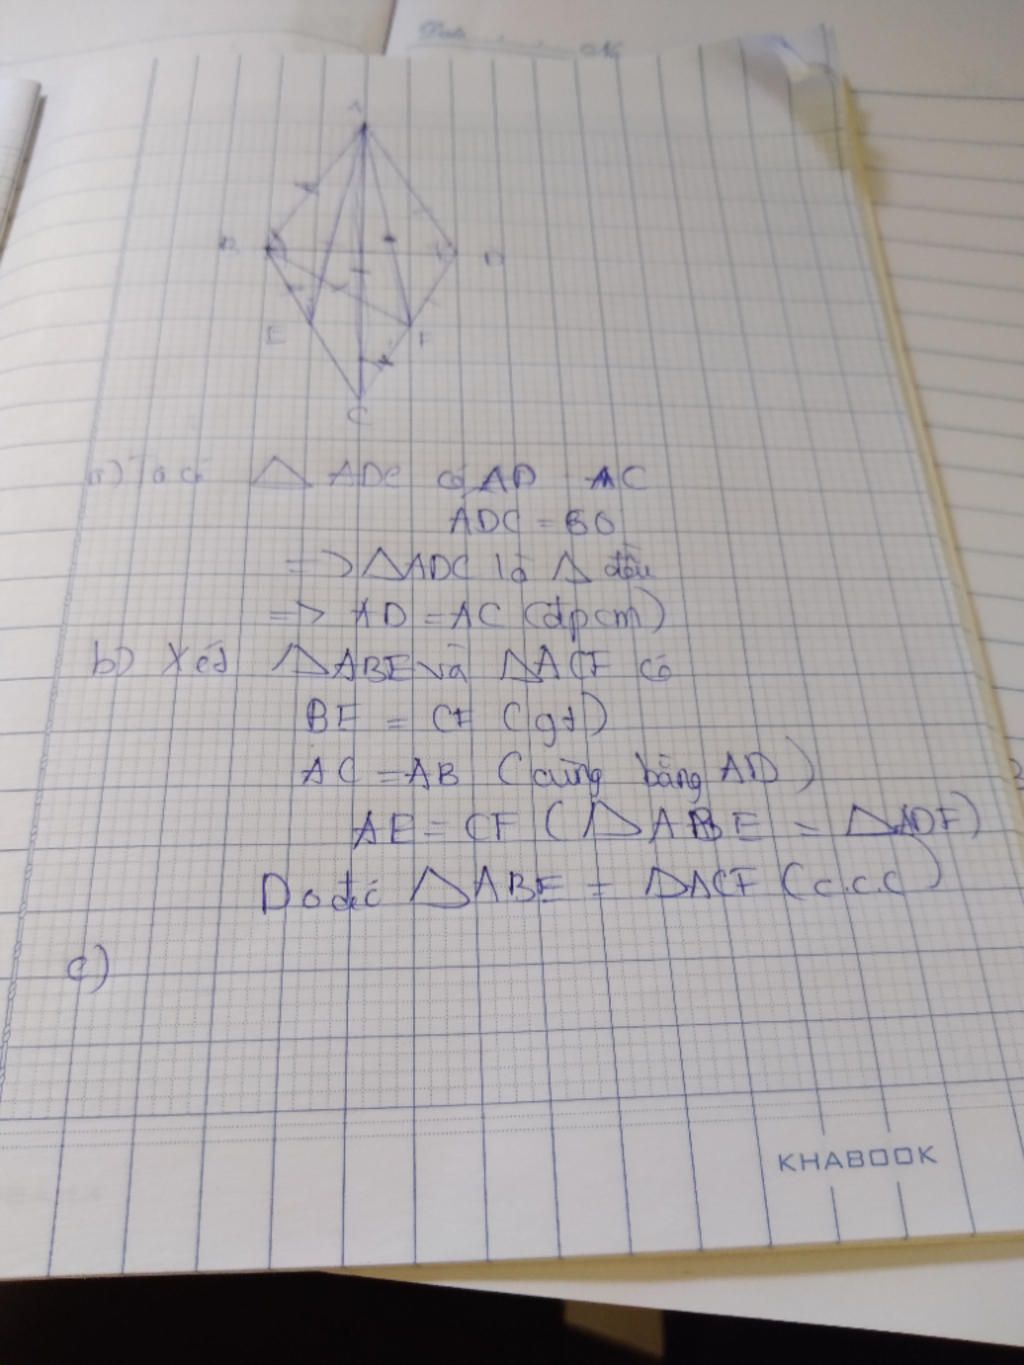 A
B
D
E
F
C
a) Ta có △ ADC có AD AC
ADC = 60
=> △ADC là △ đều
=> AD = AC (đpcm)
b) Xét △ABE và △ACF có
BE = CF (gt)
AC = AB (cùng bằng AD)
AE = CF (△ABE = △ADF)
Do đó △ABE = △ACF (c.c.c)
c)
KHABOOK